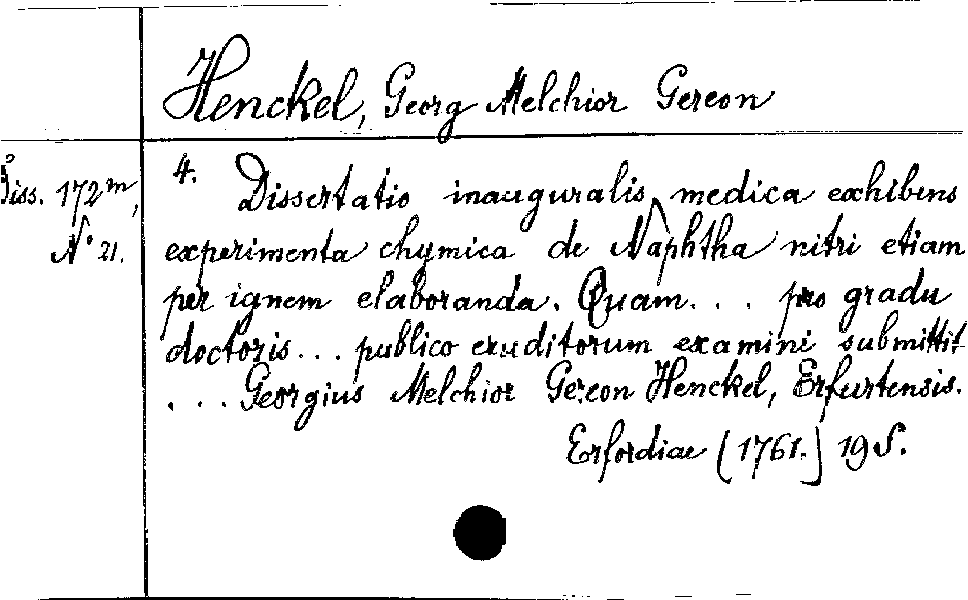 Henckel, Georg Melchior Gereon
Diss. 172m,
No 21.
4. Dissertatio inauguralis medica exhibens
experimenta chymica de Naphtha nitri etiam
per ignem elaboranda. Quam... pro gradu
doctoris... publico eruditorum examini submittit
... Georgius Melchior Gereon Henckel, Erfurtensis.
Erfordiae [1761.] 19 S.